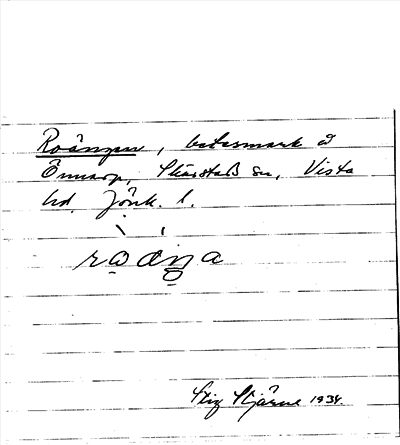 Roängen, betesmark å
Ömmarp, Skärstads sn, Vista
hd. Jönk. l.
Stig Stjärne 1934.